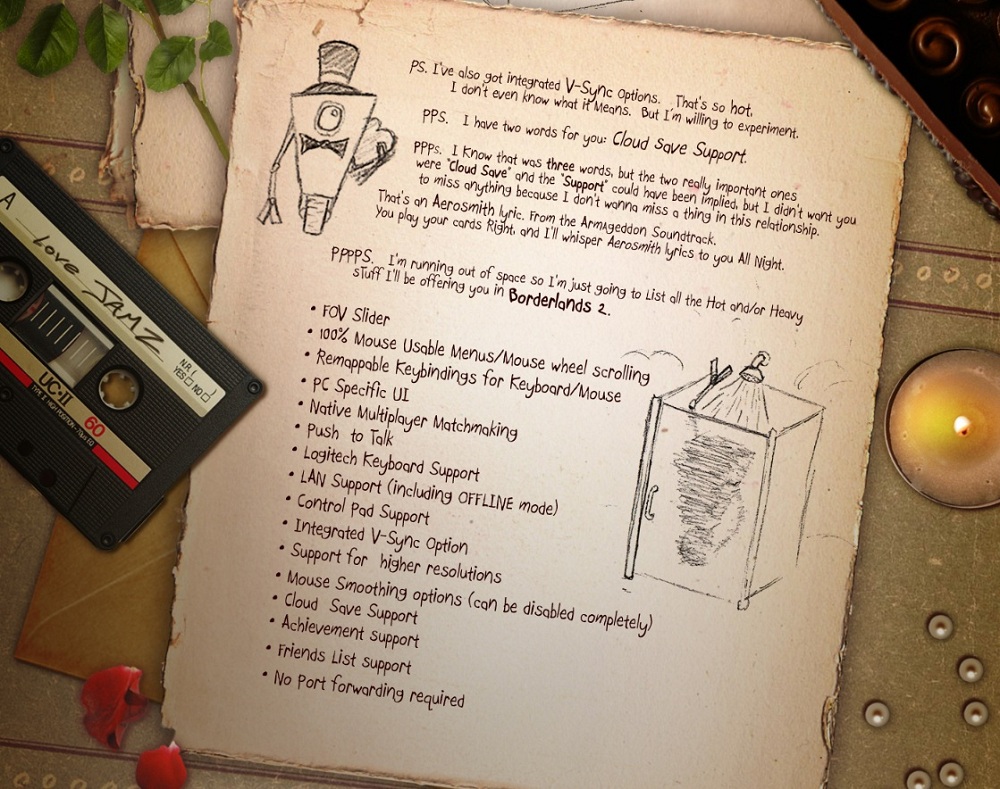 PS. I've also got integrated V-Sync Options. That's so hot,
I don't even know what it means. But I'm willing to experiment.
PPS. I have two words for you: Cloud Save Support.
PPPs. I Know that was three words, but the two really important ones
were "Cloud Save" and the "Support" could have been implied, but I didn't want you
to miss anything because I don't wanna miss a thing in this relationship.
That's an Aerosmith lyric. From the Armageddon Soundtrack.
You play your cards Right, and I'll whisper Aerosmith lyrics to you All Night.
PPPPS. I'm running out of space so I'm just going to List all the Hot and/or Heavy
stuff I'll be offering you in Borderlands 2.
• FOV Slider
• 100% Mouse Usable Menus/Mouse wheel scrolling
• Remappable Keybindings for Keyboard/Mouse
• PC Specific UI
• Native Multiplayer Matchmaking
• Push to Talk
• Logitech Keyboard Support
• LAN Support (including OFFLINE mode)
• Control Pad Support
• Integrated V-Sync Option
• Support for higher resolutions
• Mouse Smoothing options (can be disabled completely)
• Cloud Save Support
• Achievement support
• Friends List support
• No Port forwarding required
A
Love JAMZ
N.R.
YES NO
UC-II
60
TYPE II HIGH POSITION-70μs EQ